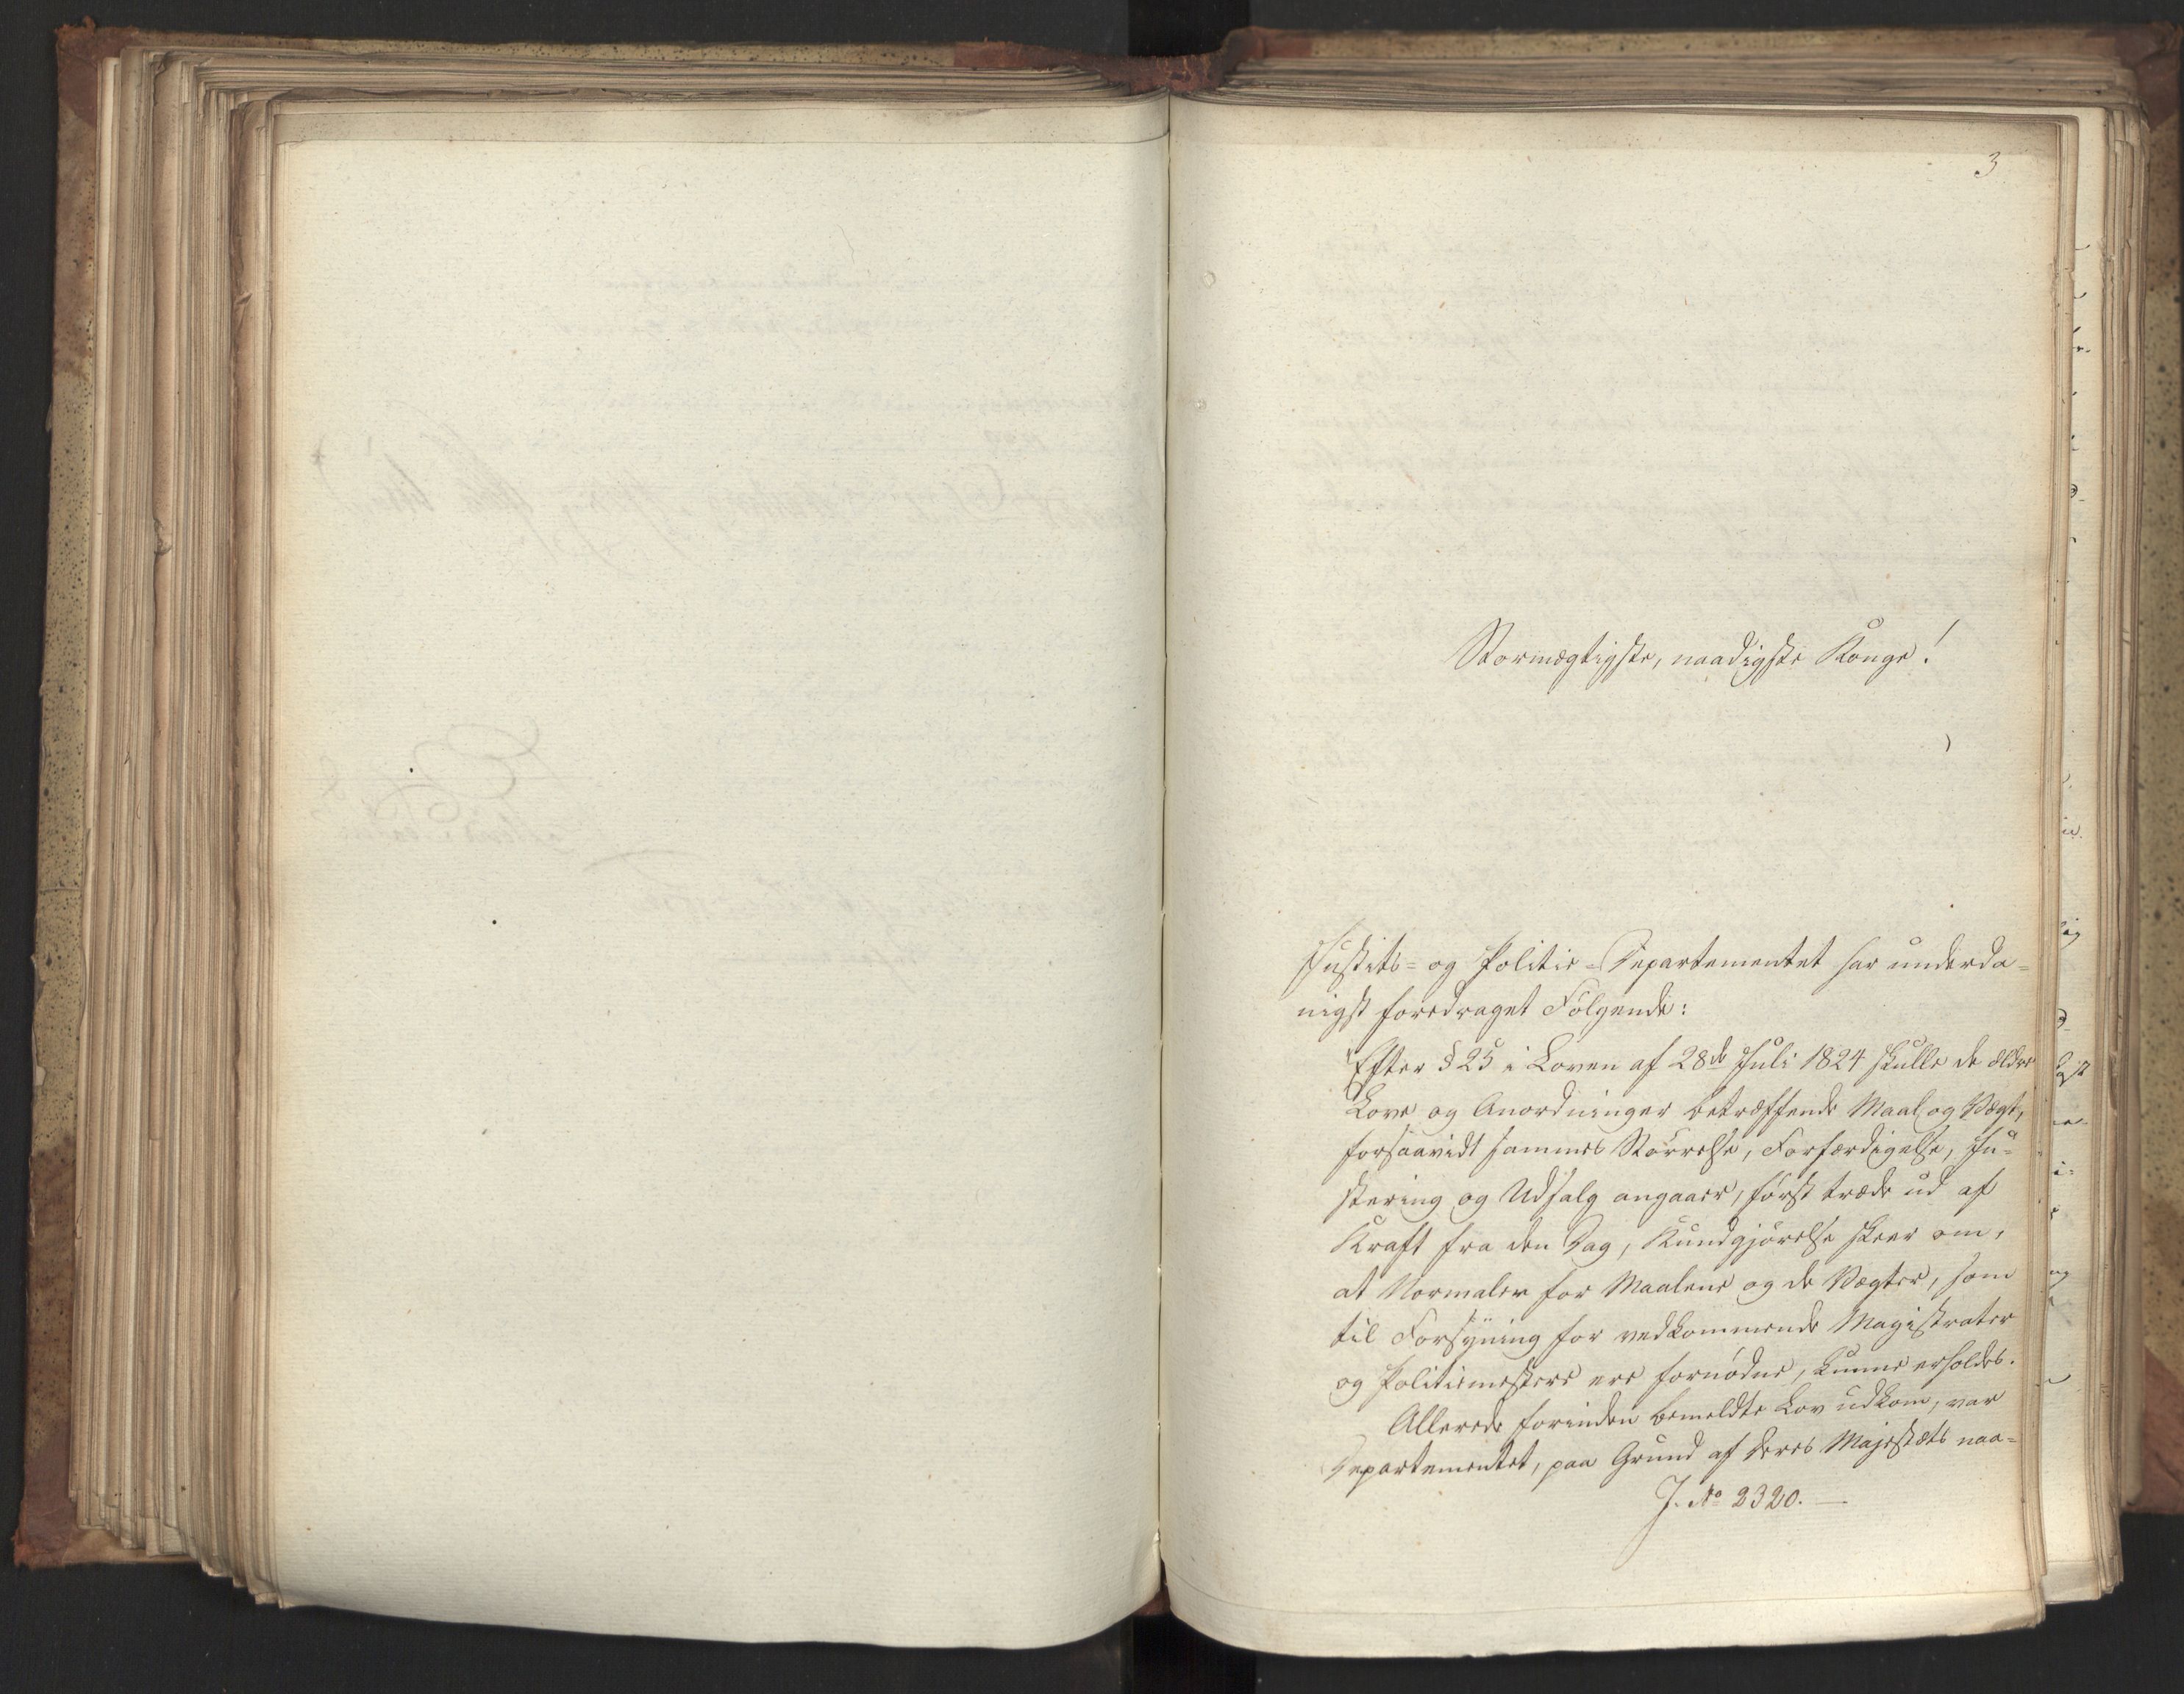 3
Stormægtigste, naadigste Konge!
Justits- og Politie-Departementet har underda-
nigst foredraget Følgende:
"Efter § 25 i Loven af 28de Juli 1824 skulle de ældre
Love og Anordninger betræffende Maal og Vægt,
forsaavidt sammes Størrelse, Forfærdigelse, Ju-
stering og Udsalg angaaer, først træde ud af
Kraft fra den Dag, Kundgjørelse skeer om,
at Normaler for Maalene og de Vægter, som
til Forsyning for vedkommende Magistrater
og Politiemestere ere fornødne, kunne erholdes.
Allerede forinden bemeldte Lov udkom, var
Departementet, paa Grund af Deres Majestæts naa-
J. No 2320. —